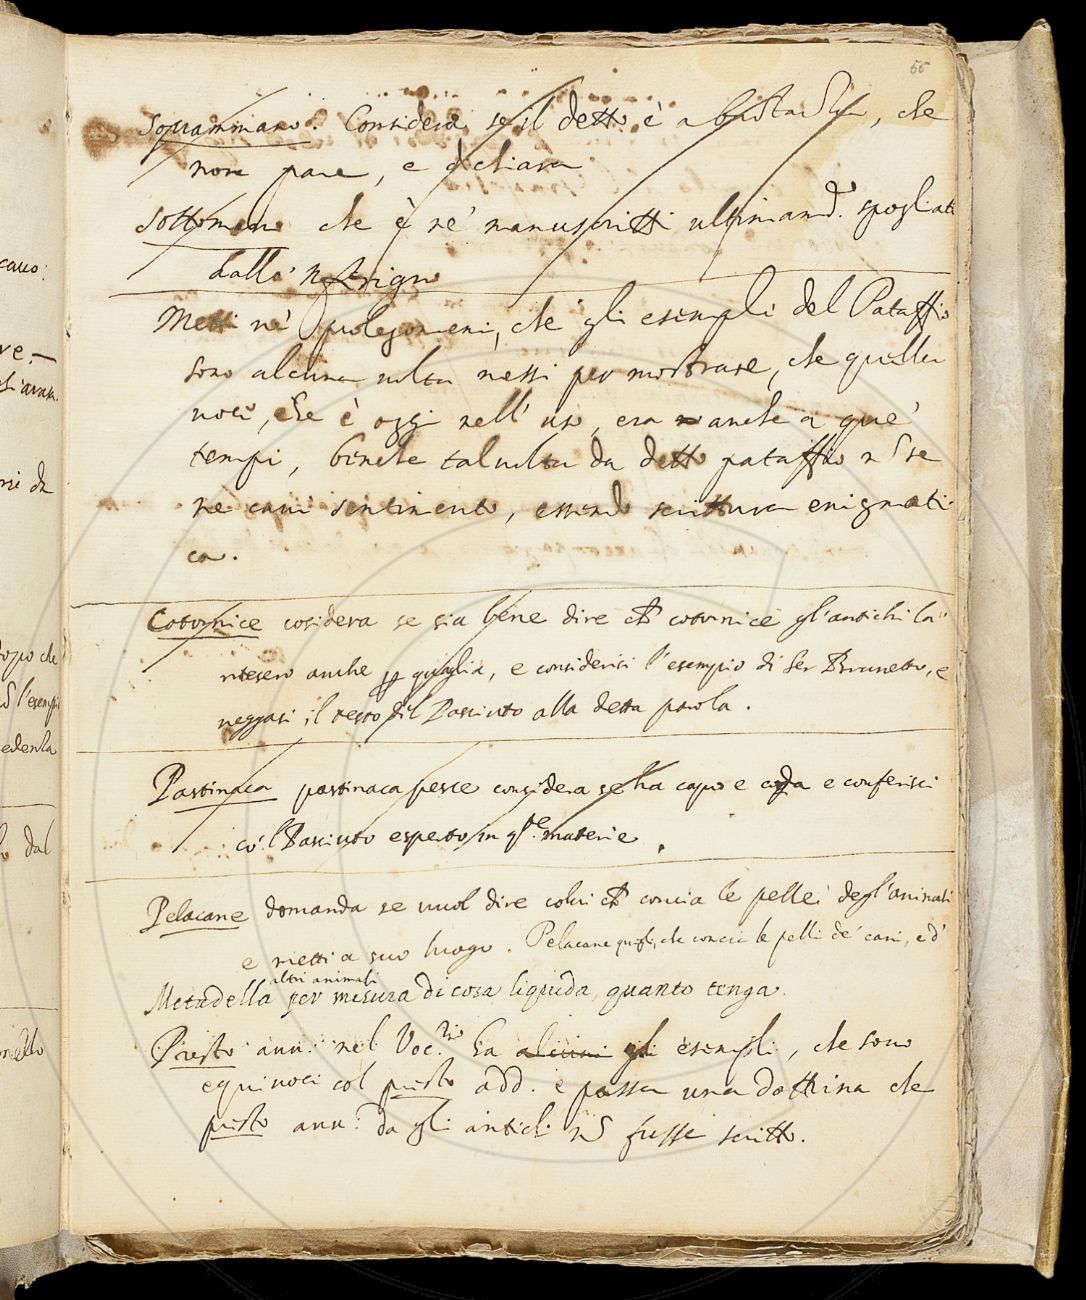 56
Squammiamo. Considera se il detto è a bastanza, che
non pare, e dichiara
Sottomano che è ne' manuscritti ultimamd. spogliati
dallo' Nferigno
Metti ne' prolegomeni, che gli esempli del Pataffio
sono alcuna volta messi per mostrare, che quella
voce, che è oggi nell' uso, era anche a que'
tempi, benche talvolta da detto pataffio nō se
ne cavi sentimento, essendo scrittura enigmati
ca.
Coturnice cosidera se sia bene dire ch coturnice gl'antichi lā
ntesero anche p quaglia, e considerisi l'esempio di Ser Brunetto, e
veggasi il resto del Pasciuto alla detta parola.
Pastinaca pastinaca pesce considera se ha capo e coda e conferisci
co' l Pasciuto esperto in qste materie.
Pelacane domanda se vuol dire colui ch concia le pelle degl'animali
e metti a suo luogo. Pelacane quegli, che concia le pelli de' cani, e d'
altri animali
Metadella per misura di cosa liquida, quanto tenga.
Presto avv. nel Voc.rio ha alcuni gli esempli, che sono
equivoci col presto add. e passa una dottrina che
presto avv. da gli antichi nō fusse scritto.
cavo:
ve.
opo che
l'esempi
edenla
dal